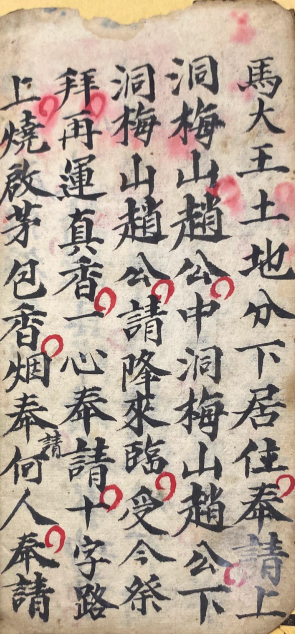 馬大王土地分下居住奉請上
洞梅山趙公中洞梅山趙公下
洞梅山趙公請降來臨受今祭
拜再運真香一心奉請十字路
上燒啟茅包香烟奉請何人奉請